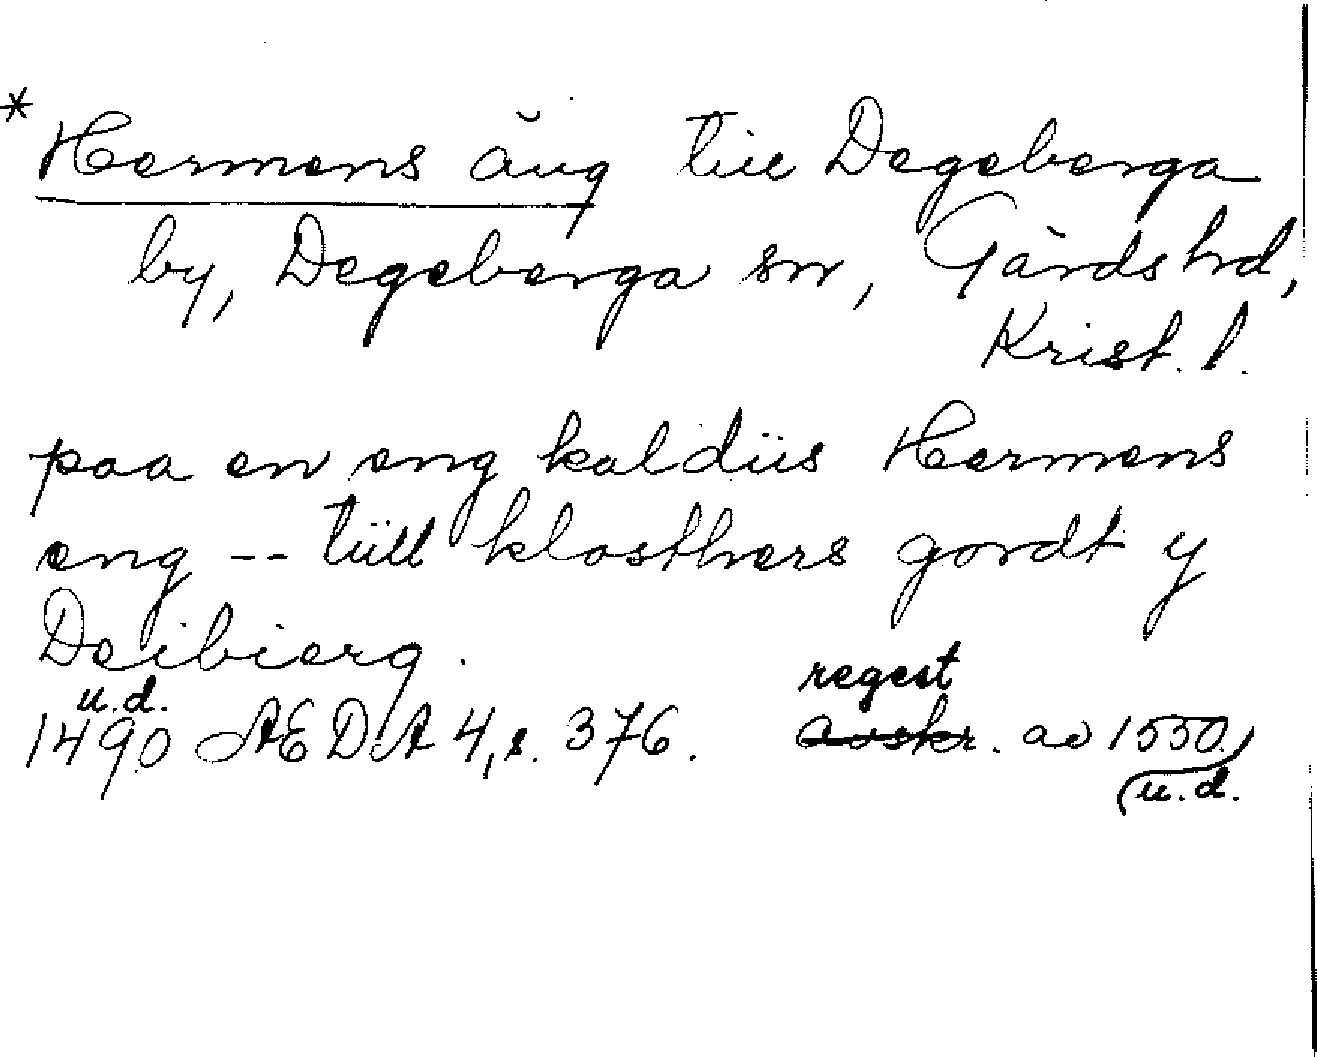 * Hermens äng till Degeberga
by, Degeberga sn, Gärds hd,
Krist. l.
paa en eng kaldiis Hermens
eng -- tiill klosthers gordt y
Deibierg.
u.d.
1490 ÆDA 4, s. 376. regest
avskr. av 1550
u.d.